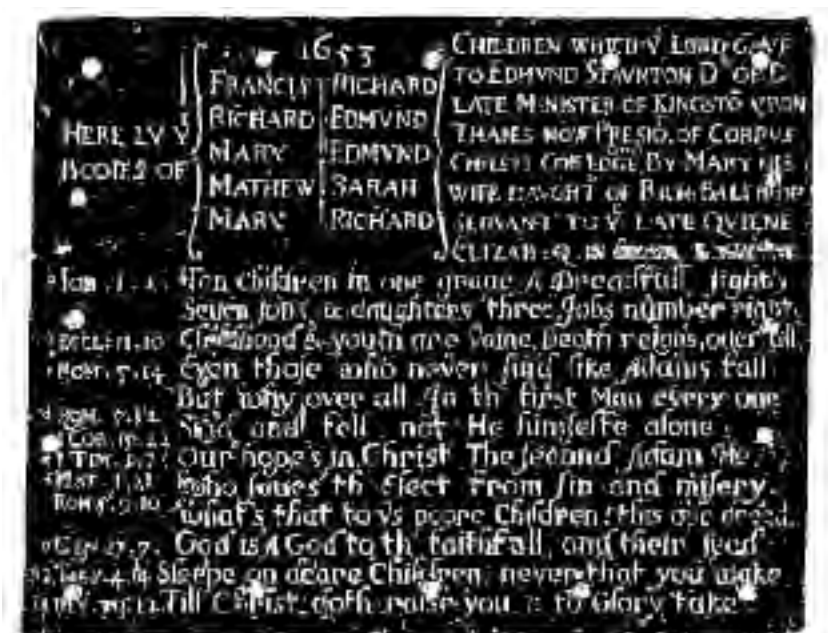 1653
HERE LY Y
BODIES OF
FRANCIS RICHARD
RICHARD EDMVND
MARY EDMVND
MATHEW SARAH
MARY RICHARD
CHILDREN WHICH Y LORD GAVE
TO EDMVND STAVNTON Dr OF D
LATE MINISTER OF KINGSTŌ VPON
THAMES NOW PRESID. OF CORPUS
CHRISTI COLLDGE BY MARY HIS
WIFE DAVGHT OF RICH
SERVANT TO Y LATE QVIENE
ELIZAB
Ten Children in one graue A Dreadfull sight
Seuen sons & daughters three Jobs number right
Childhood & youth are Vaine, Death reigns ouer all
Even those who never sind like Adams fall
But why over all In th first Man every one
Sind and Fell not He himselfe alone
Our hope's in Christ The second Adam He
Who saues th Elect From sin and misery
What's that to vs poore Children this our Creed
God is A God to th faithfull, and their seed
Sleepe on deare Children never that you wake
Till Christ doth raise you to Glory take